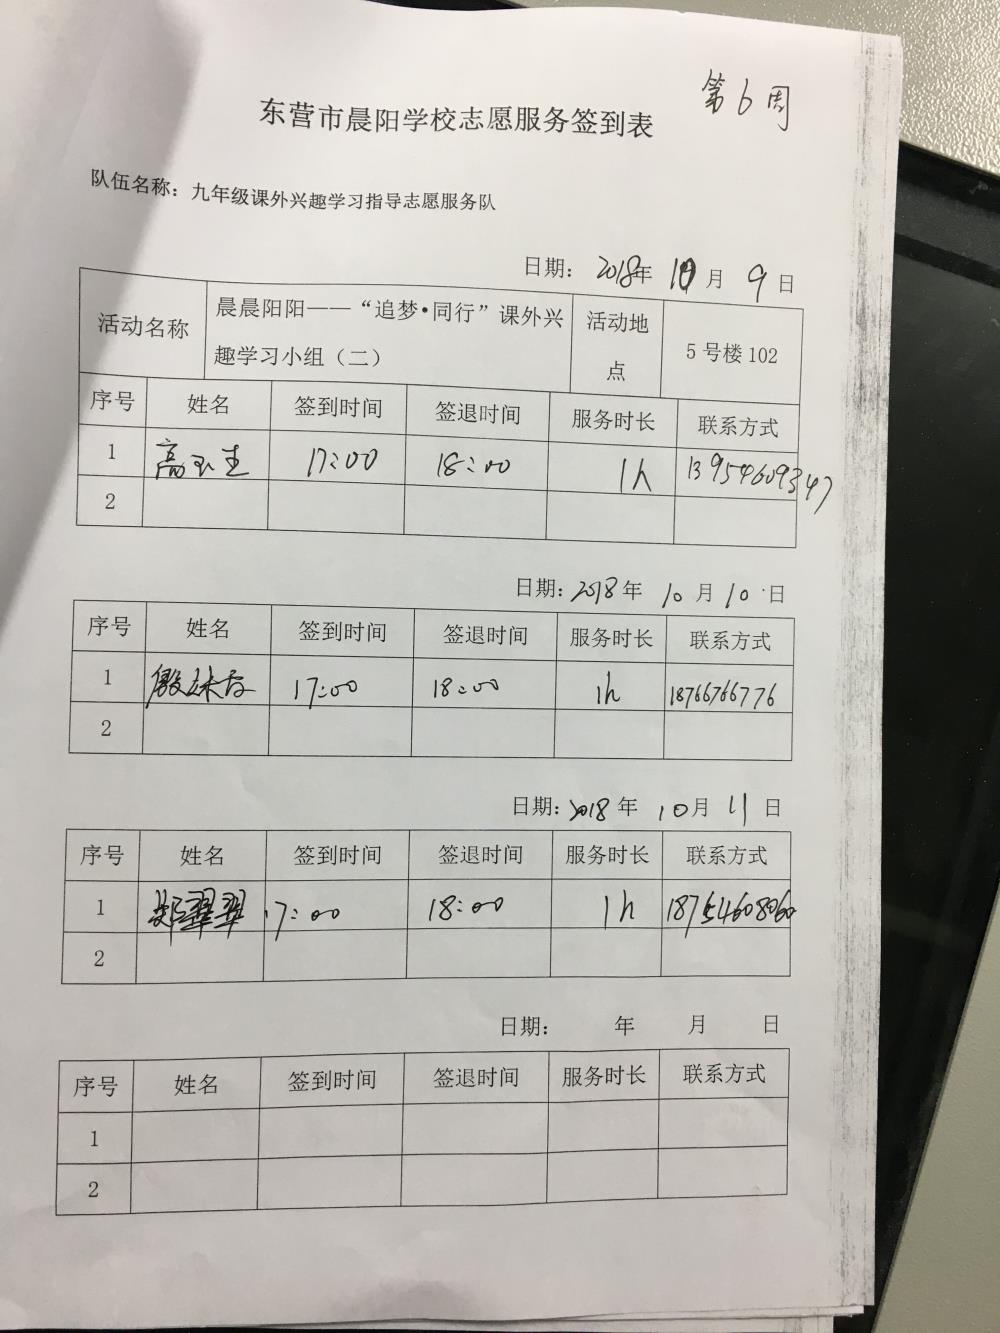 第6周
东营市晨阳学校志愿服务签到表
队伍名称：九年级课外兴趣学习指导志愿服务队
日期： 2018年 10月 9日
活动名称 晨晨阳阳——“追梦•同行”课外兴趣学习小组（二） 活动地点 5号楼102
序号 姓名 签到时间 签退时间 服务时长 联系方式
1 高玉生 17:00 18:00 1h 13954609347
2
日期：2018年 10月10日
序号 姓名 签到时间 签退时间 服务时长 联系方式
1 17:00 18:00 1h 18766766776
2
日期：2018年 10月 11日
序号 姓名 签到时间 签退时间 服务时长 联系方式
1 郑翠翠 17:00 18:00 1h 18754608060
2
日期： 年 月 日
序号 姓名 签到时间 签退时间 服务时长 联系方式
1
2